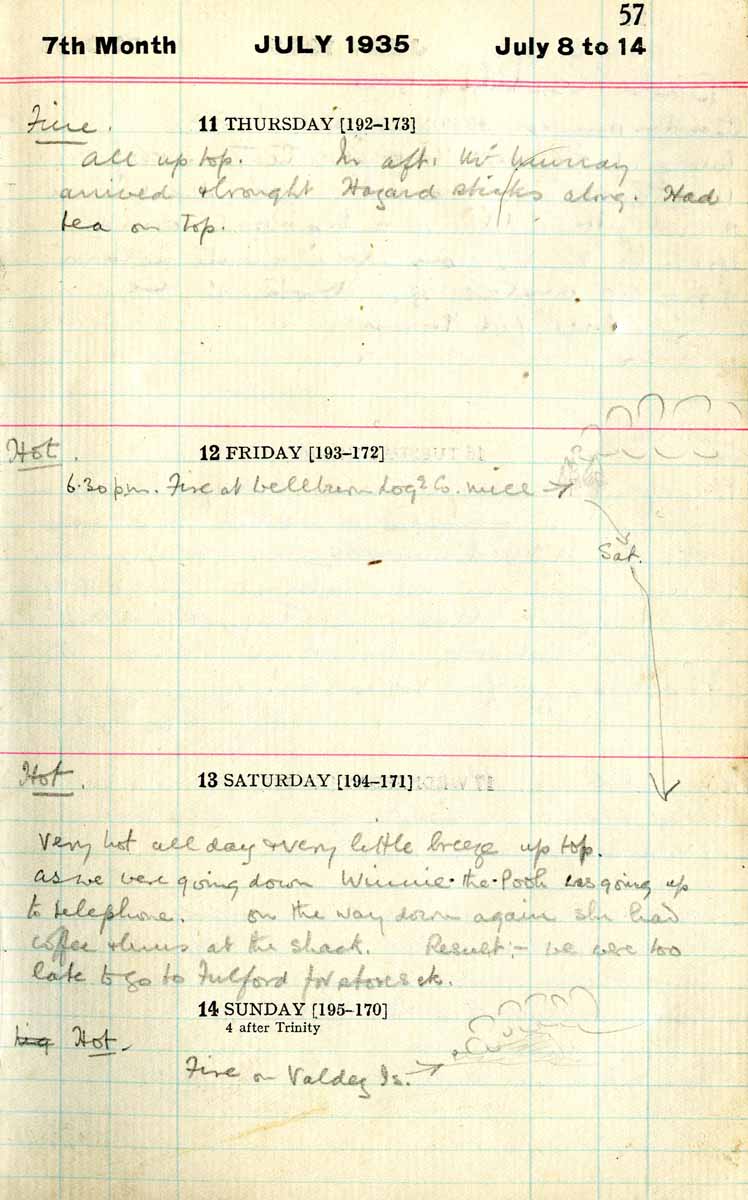 57
7th Month JULY 1935 July 8 to 14
Fine. 11 THURSDAY [192–173]
All up top. In aft. Mr Murray
arrived & brought Hazard sticks along. Had
tea on top.
Hot. 12 FRIDAY [193–172]
6.30 pm. Fire at Logg Co. mill →
Sat.
Hot. 13 SATURDAY [194–171]
Very hot all day & very little breeze up top.
As we were going down Winnie-the-Pooh was going up
to telephone. On the way down again she had
coffee & buns at the shack. Result:- we were too
late to go to Fulford for stores etc.
14 SUNDAY [195–170]
4 after Trinity
Hot.
Fire on Valdez Is. →